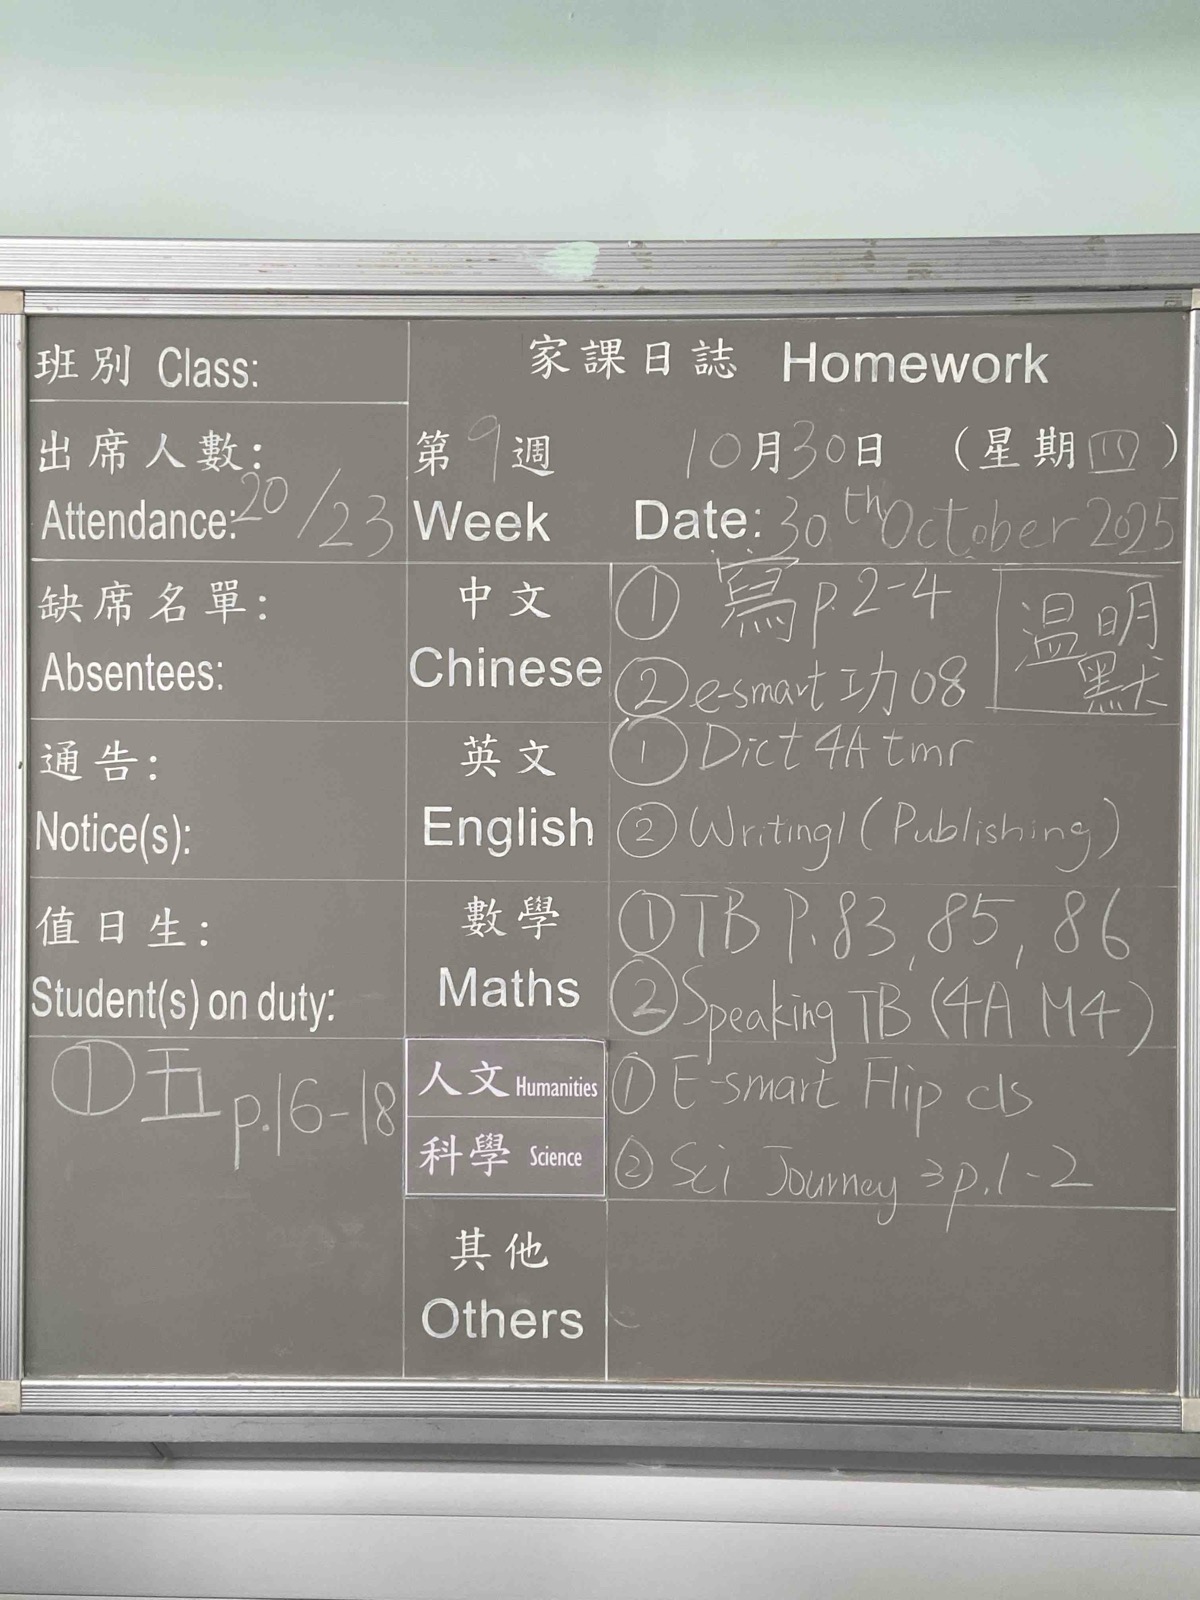 班別 Class:
家課日誌 Homework
出席人數:
Attendance: 20/23
第9週
Week
10月30日 (星期四)
Date: 30th October 2025
缺席名單:
Absentees:
中文
Chinese
① 寫 p.2-4
② e-smart 功08
温明
默
通告:
Notice(s):
英文
English
① Dict 4A tmr
② Writing1 (Publishing)
值日生:
Student(s) on duty:
數學
Maths
① TB P.83, 85, 86
② Speaking TB (4A M4)
① 五 p.16-18
人文 Humanities
① E-smart Flip cls
科學 Science
② Sci Journey 3 p.1-2
其他
Others